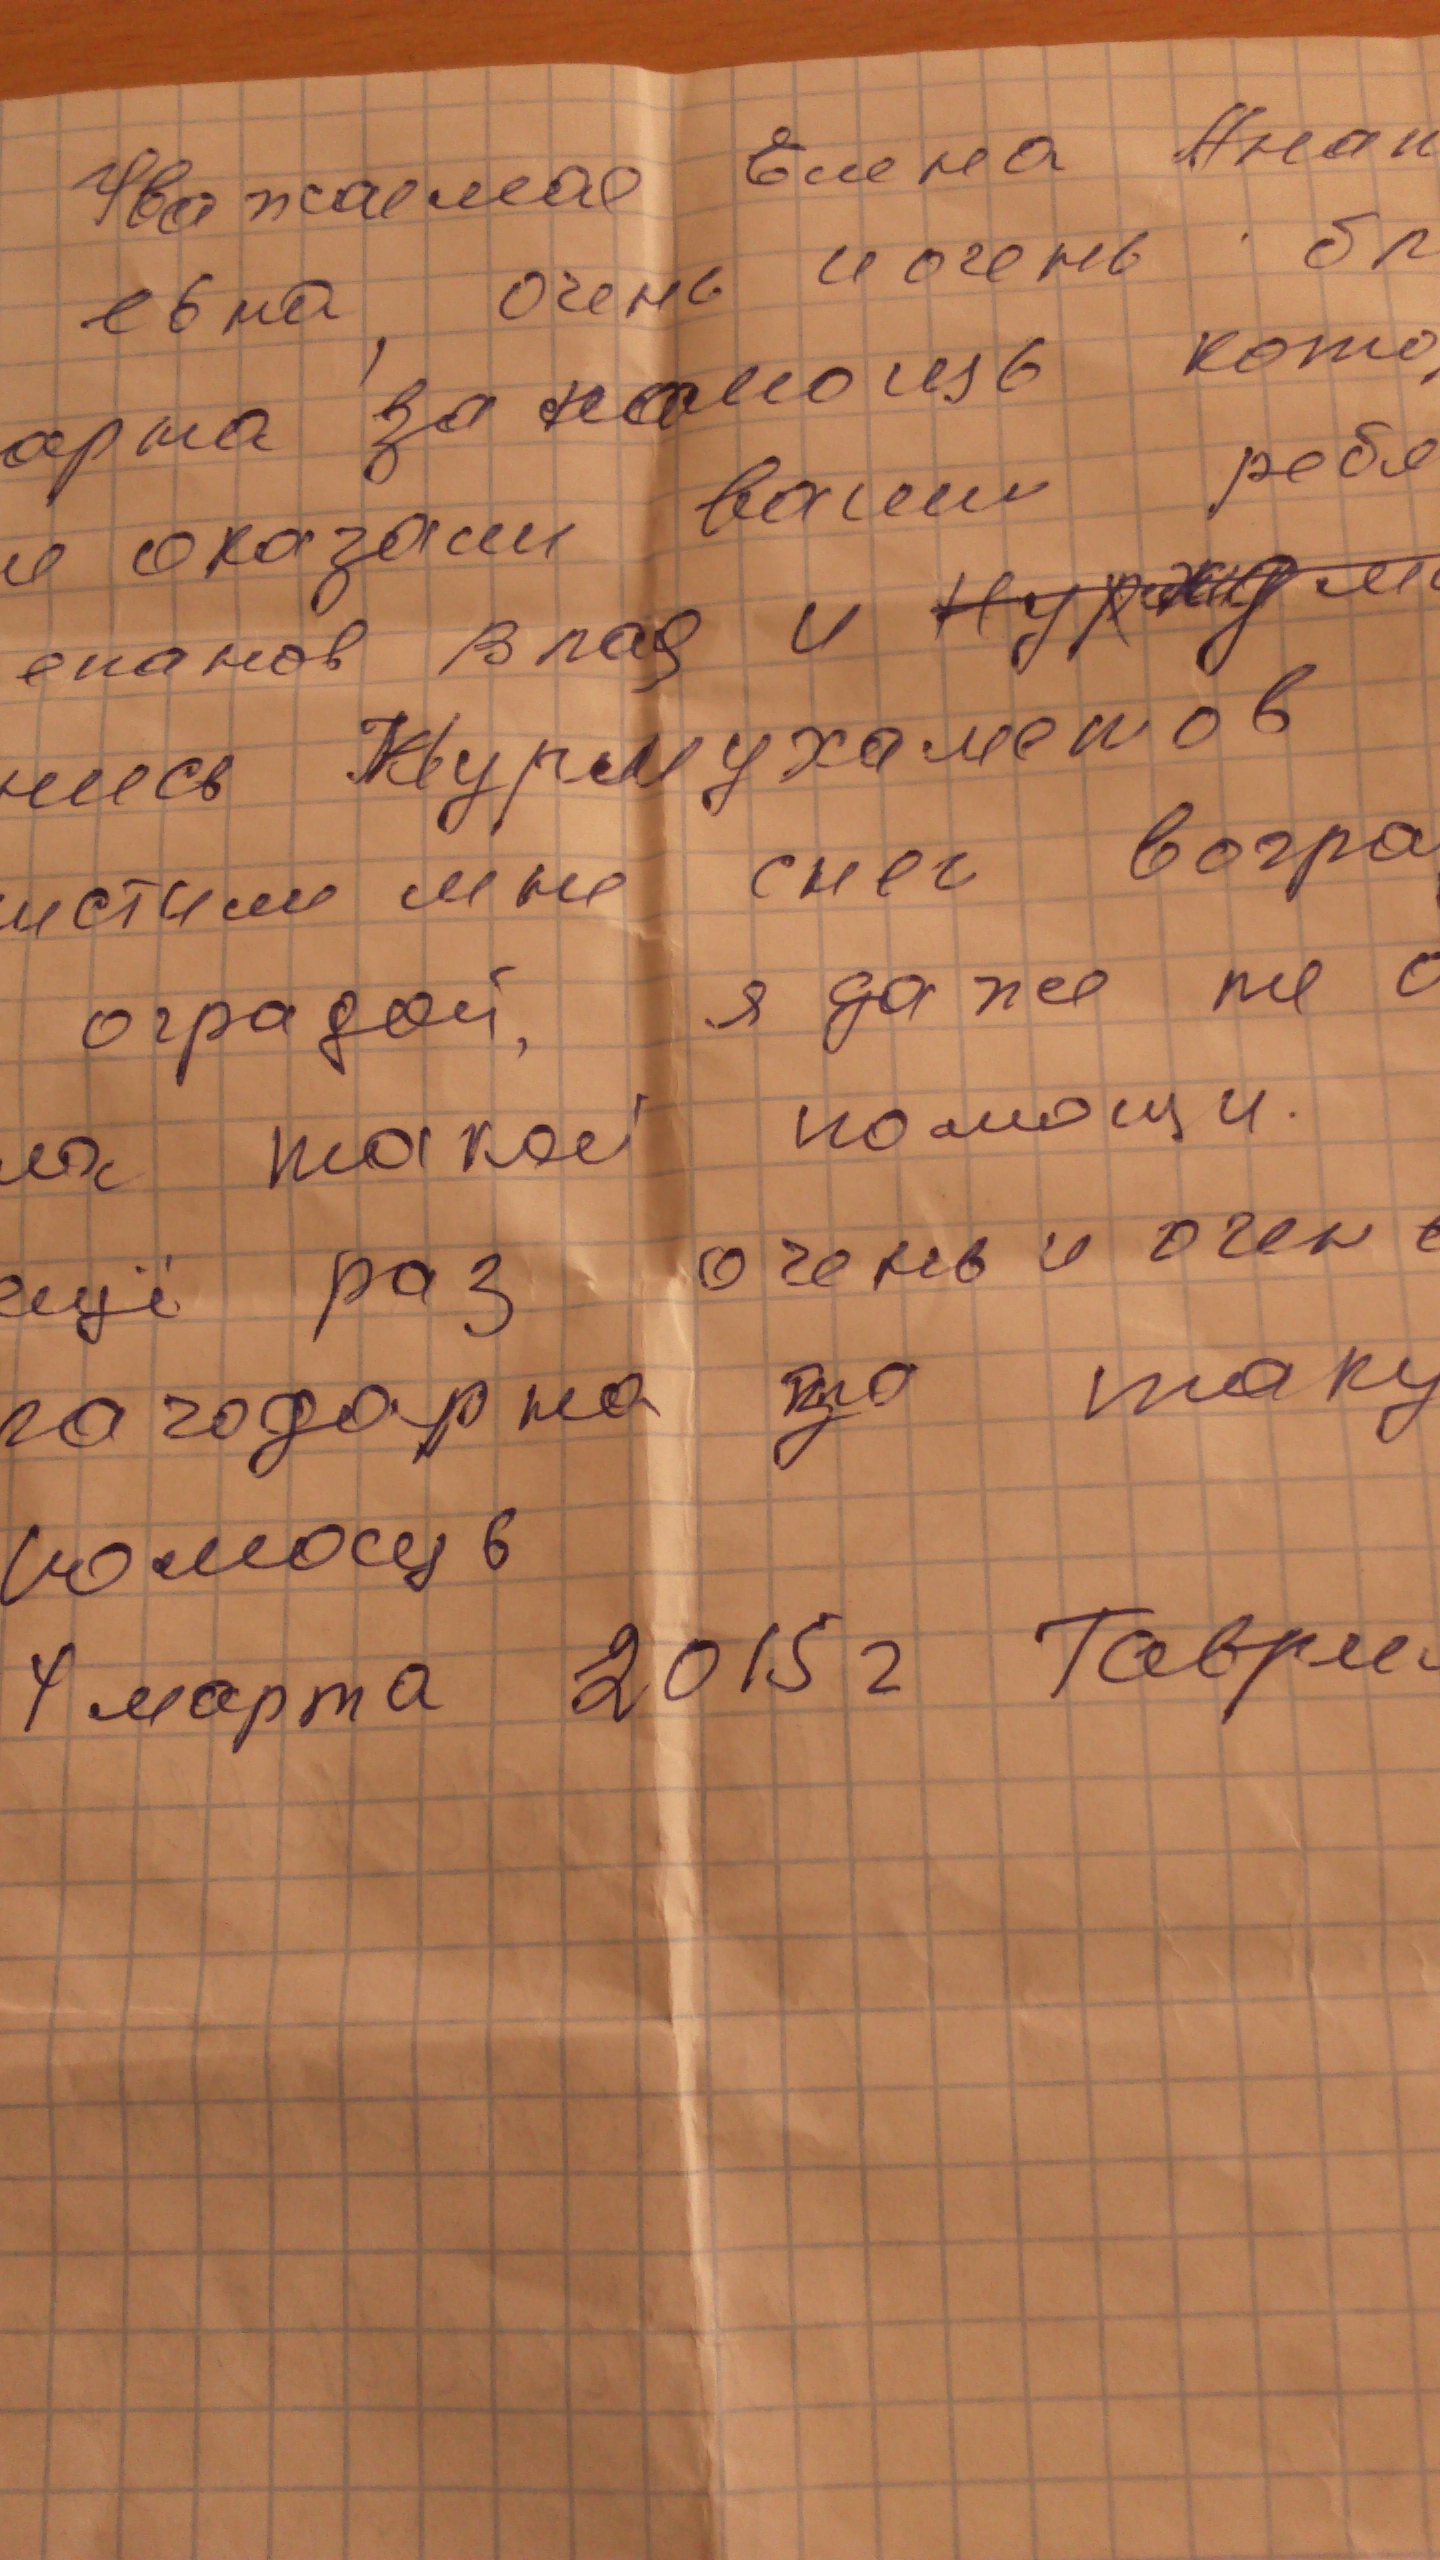 Уважаемае Елена Анан
евна, очень и очень бл
арна за помощь кото
и оказали ваши ребя
епанов Влад и
нись Нурмухаметов
истили мне снег вогра
оградой, я даже не о
ла такой помощи.
ещё раз очень и очень
лагодарна за таку
помощь
4 марта 2015 г Гаврил